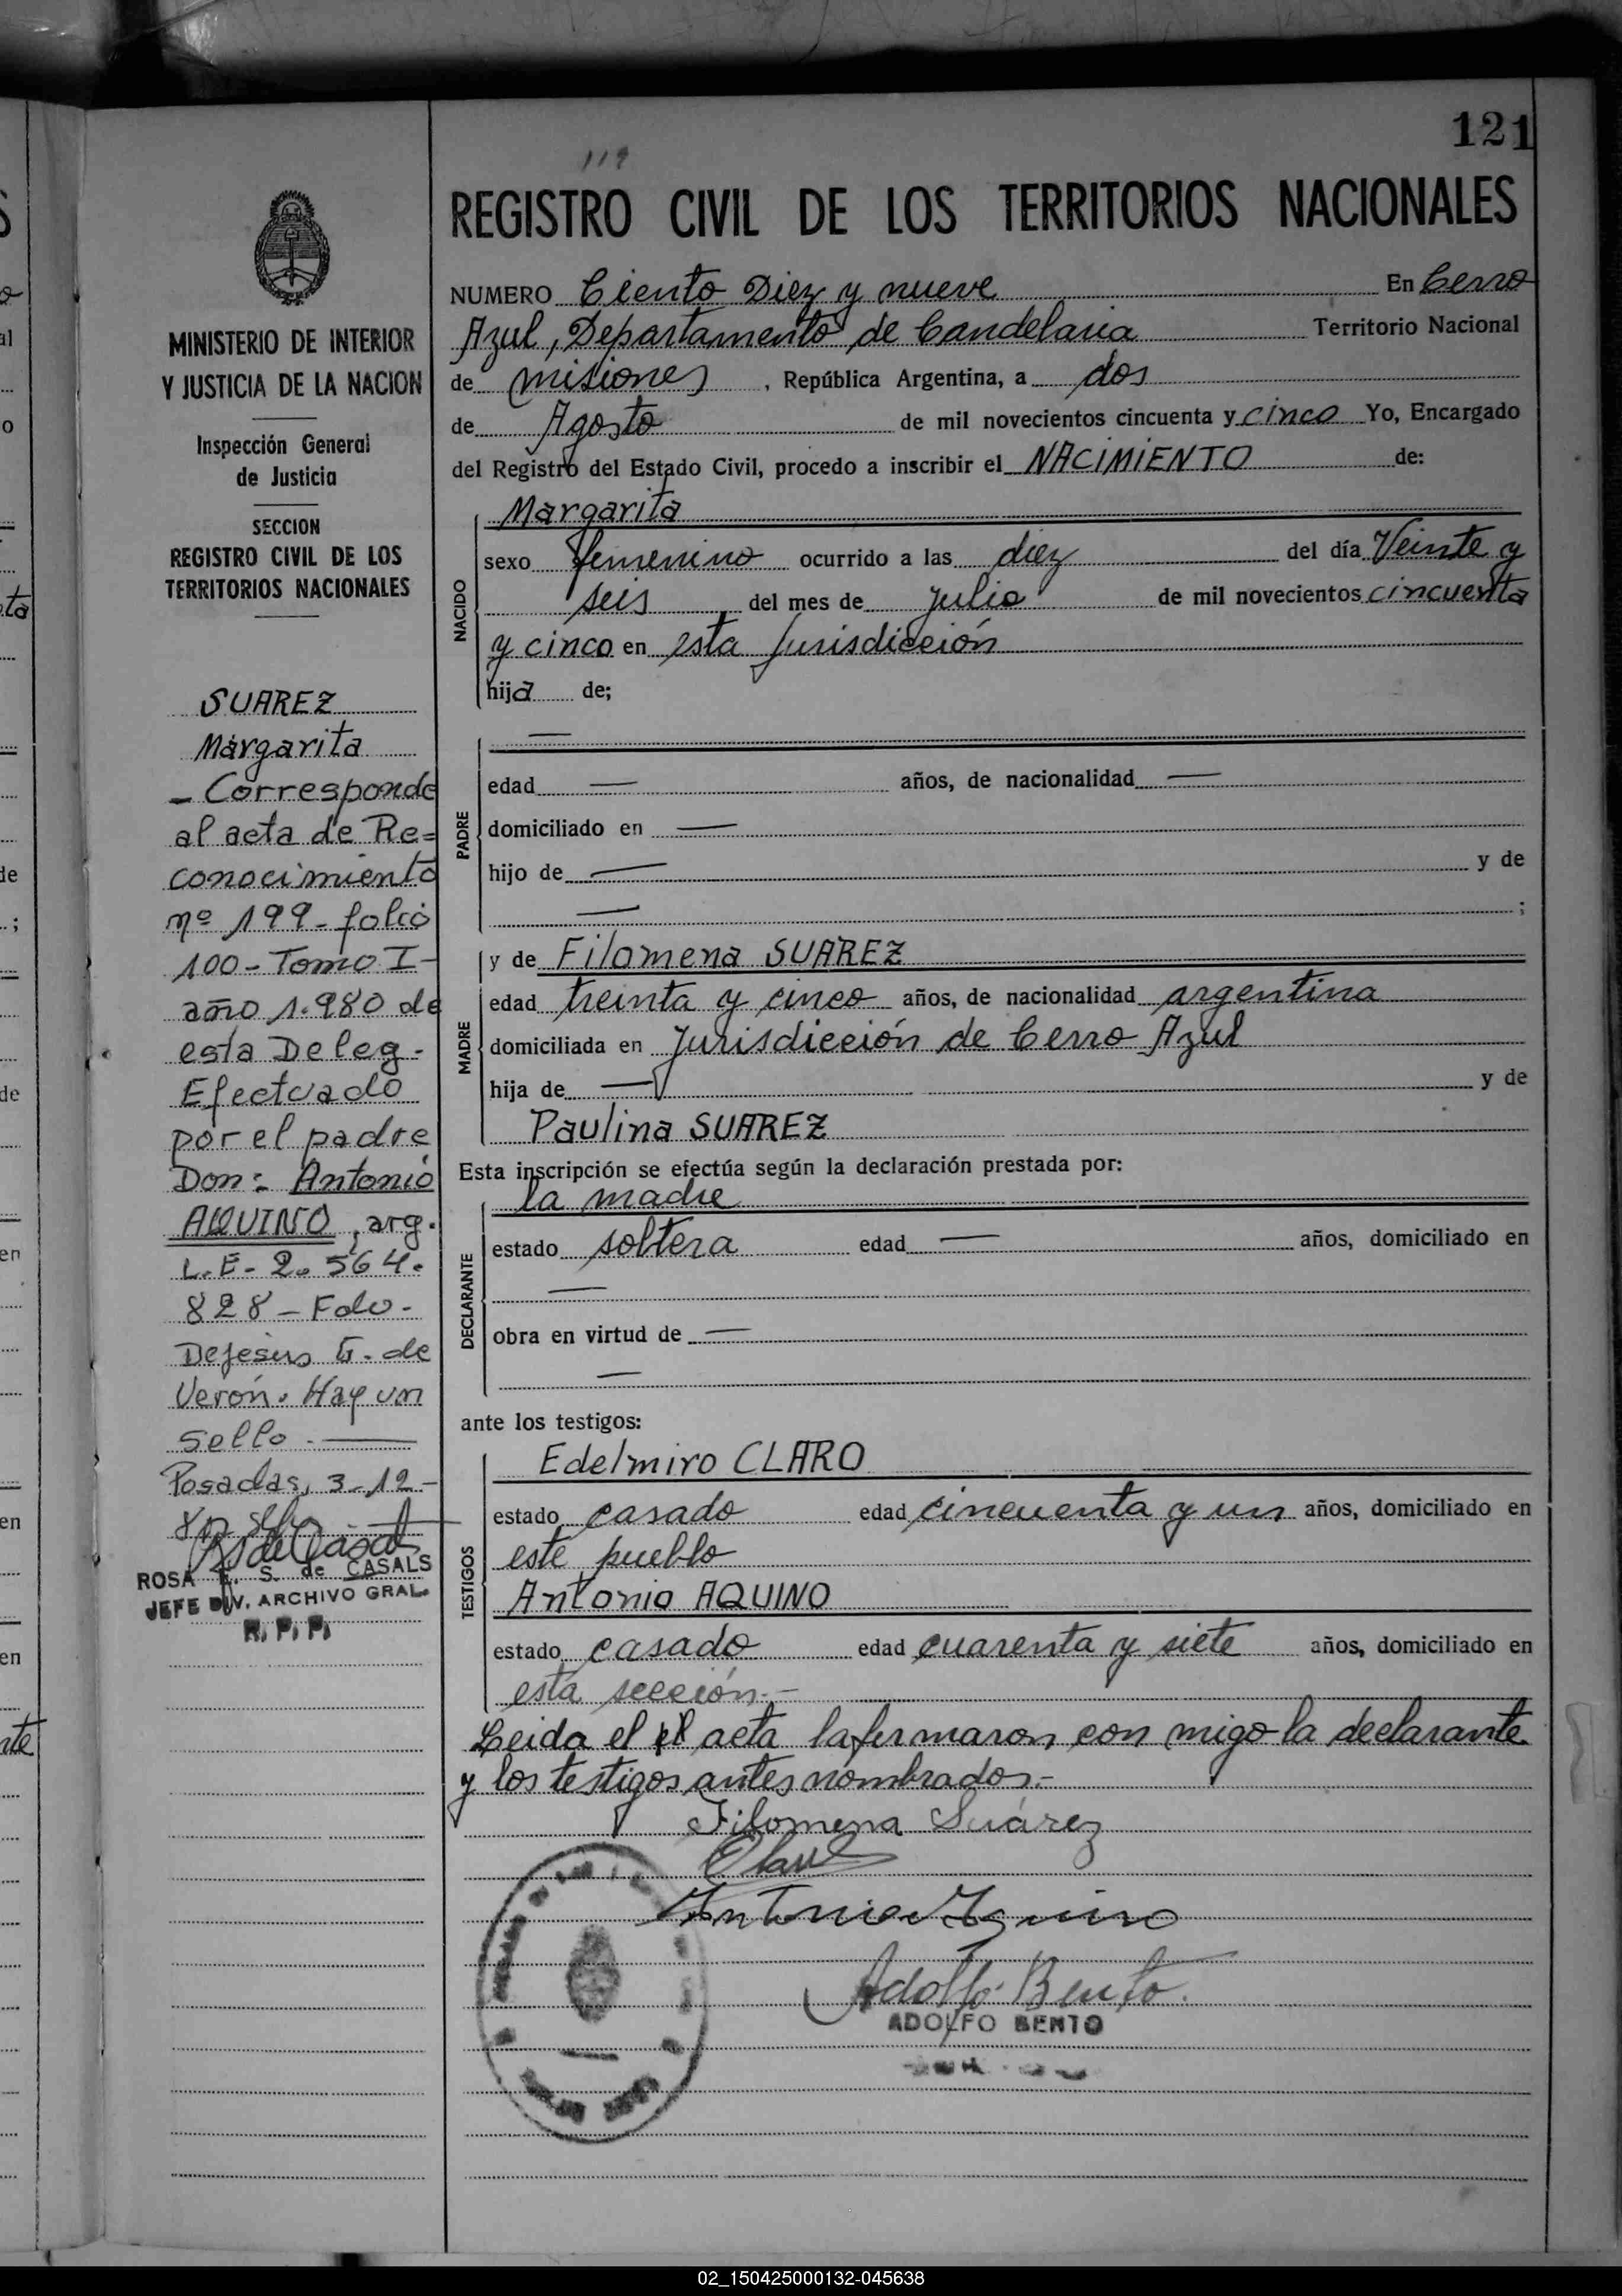 121
119
REGISTRO CIVIL DE LOS TERRITORIOS NACIONALES
MINISTERIO DE INTERIOR
Y JUSTICIA DE LA NACION
Inspección General
de Justicia
SECCION
REGISTRO CIVIL DE LOS
TERRITORIOS NACIONALES
SUAREZ
Margarita
- Corresponde
al acta de Re=
conocimiento
nº 199 - folio
100 - Tomo I -
año 1.980 de
esta Deleg -
Efectuado
por el padre
Don: Antonio
AQUINO, arg.
L.E - 2. 564.
828 - Fdo -
Dejesús G. de
Verón. Hay un
sello -
Posadas, 3-12-
ROSA E. S. de CASALS
JEFE DIV. ARCHIVO GRAL.
R. P. P.
NUMERO Ciento Diez y nueve En Cerro
Azul, Departamento de Candelaria Territorio Nacional
de misiones, República Argentina, a dos
de Agosto de mil novecientos cincuenta y cinco Yo, Encargado
del Registro del Estado Civil, procedo a inscribir el NACIMIENTO de:
NACIDO
Margarita
sexo femenino ocurrido a las diez del día Veinte y
seis del mes de julio de mil novecientos cincuenta
y cinco en esta Jurisdicción
hija de;
PADRE
—
edad — años, de nacionalidad —
domiciliado en —
hijo de — y de
— ;
MADRE
y de Filomena SUAREZ
edad treinta y cinco años, de nacionalidad argentina
domiciliada en Jurisdicción de Cerro Azul
hija de — y de
Paulina SUAREZ
Esta inscripción se efectúa según la declaración prestada por:
DECLARANTE
la madre
estado soltera edad — años, domiciliado en
—
obra en virtud de —
—
ante los testigos:
TESTIGOS
Edelmiro CLARO
estado casado edad cincuenta y un años, domiciliado en
este pueblo
Antonio AQUINO
estado casado edad cuarenta y siete años, domiciliado en
esta sección.-
Leida el acta la firmaron con migo la declarante
y los testigos antes nombrados.-
Filomena Suárez
Claro
Antonio Aquino
Adolfo Bento
ADOLFO BENTO
02_150425000132-045638